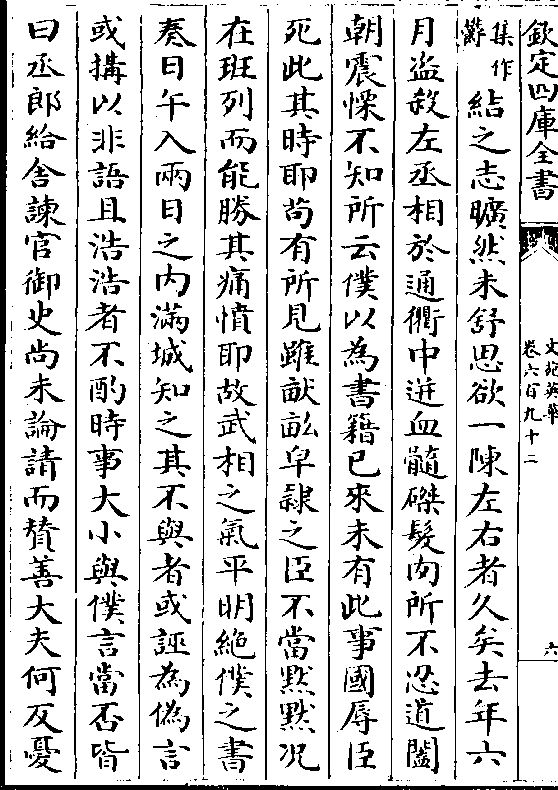 欽定四庫全書
文苑英華
卷六百九十二
六
集作
欝
結之志曠然未舒思欲一陳左右者久矣去年六
月盗殺左丞相於通衢中迸血髓磔髮肉所不忍道闔
朝震慄不知所云僕以為書籍已來未有此事國辱臣
死此其時耶茍有所見雖畎畝皁隸之臣不當黙黙况
在班列而能勝其痛憤耶故武相之氣平明絶僕之書
奏日午入兩日之内滿城知之其不與者或誣為偽言
或搆以非語且浩浩者不酌時事大小與僕言當否皆
曰丞郎給舍諫官御史尚未論請而賛善大夫何反憂